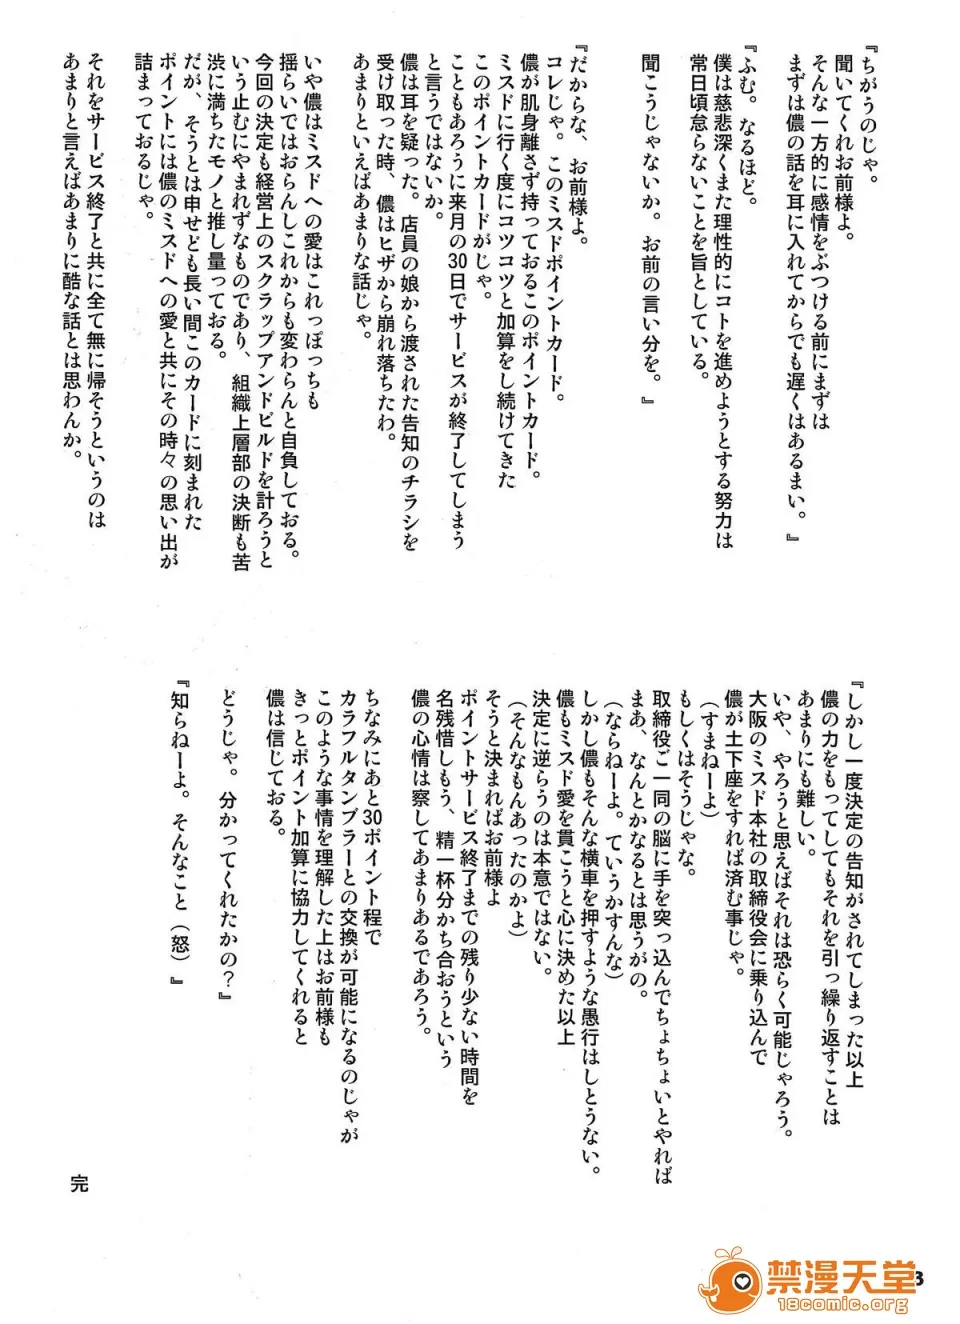 『ちがうのじゃ。
聞いてくれお前様よ。
そんな一方的に感情をぶつける前にまずは
まずは儂の話を耳に入れてからでも遅くはあるまい。』
『ふむ。なるほど。
僕は慈悲深くまた理性的にコトを進めようとする努力は
常日頃怠らないことを旨としている。
聞こうじゃないか。お前の言い分を。』
『だからな、お前様よ。
コレじゃ。このミスドポイントカード。
儂が肌身離さず持っておるこのポイントカード。
ミスドに行く度にコツコツと加算をし続けてきた
このポイントカードがじゃ。
こともあろうに来月の30日でサービスが終了してしまう
と言うではないか。
儂は耳を疑った。店員の娘から渡された告知のチラシを
受け取った時、儂はヒザから崩れ落ちたわ。
あまりといえばあまりな話じゃ。
いや儂はミスドへの愛はこれっぽっちも
揺らいではおらんしこれからも変わらんと自負しておる。
今回の決定も経営上のスクラップアンドビルドを計ろうと
いう止むにやまれずなものであり、組織上層部の決断も苦
渋に満ちたモノと推し量っておる。
だが、そうとは申せども長い間このカードに刻まれた
ポイントには儂のミスドへの愛と共にその時々の思い出が
詰まっておるじゃ。
それをサービス終了と共に全て無に帰そうというのは
あまりと言えばあまりに酷な話とは思わんか。
『しかし一度決定の告知がされてしまった以上
儂の力をもってしてもそれを引っ繰り返すことは
あまりにも難しい。
いや、やろうと思えばそれは恐らく可能じゃろう。
大阪のミスド本社の取締役会に乗り込んで
儂が土下座をすれば済む事じゃ。
(すまねーよ)
もしくはそうじゃな。
取締役ご一同の脳に手を突っ込んでちょちょいとやれば
まあ、なんとかなるとは思うがの。
(ならねーよ。ていうかすんな)
しかし儂もそんな横車を押すような愚行はしとうない。
儂もミスド愛を貫こうと心に決めた以上
決定に逆らうのは本意ではない。
(そんなもんあったのかよ)
そうと決まればお前様よ
ポイントサービス終了までの残り少ない時間を
名残惜しもう、精一杯分かち合おうという
儂の心情は察してあまりあるであろう。
ちなみにあと30ポイント程で
カラフルタンブラーとの交換が可能になるのじゃが
このような事情を理解した上はお前様も
きっとポイント加算に協力してくれると
儂は信じておる。
どうじゃ。分かってくれたかの?』
『知らねーよ。そんなこと(怒)』
完
3
禁漫天堂
18comic.org